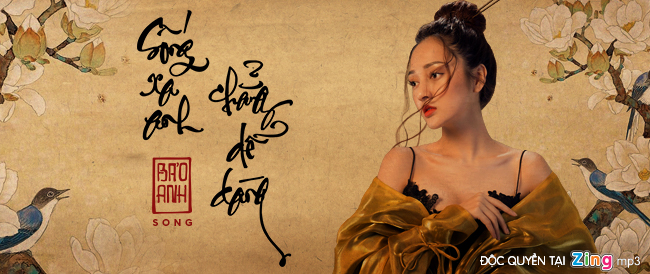 Sống
xa
anh
chẳng
dễ
dàng
BẢO
ANH
SONG
ĐỘC QUYỀN TẠI Zing mp3